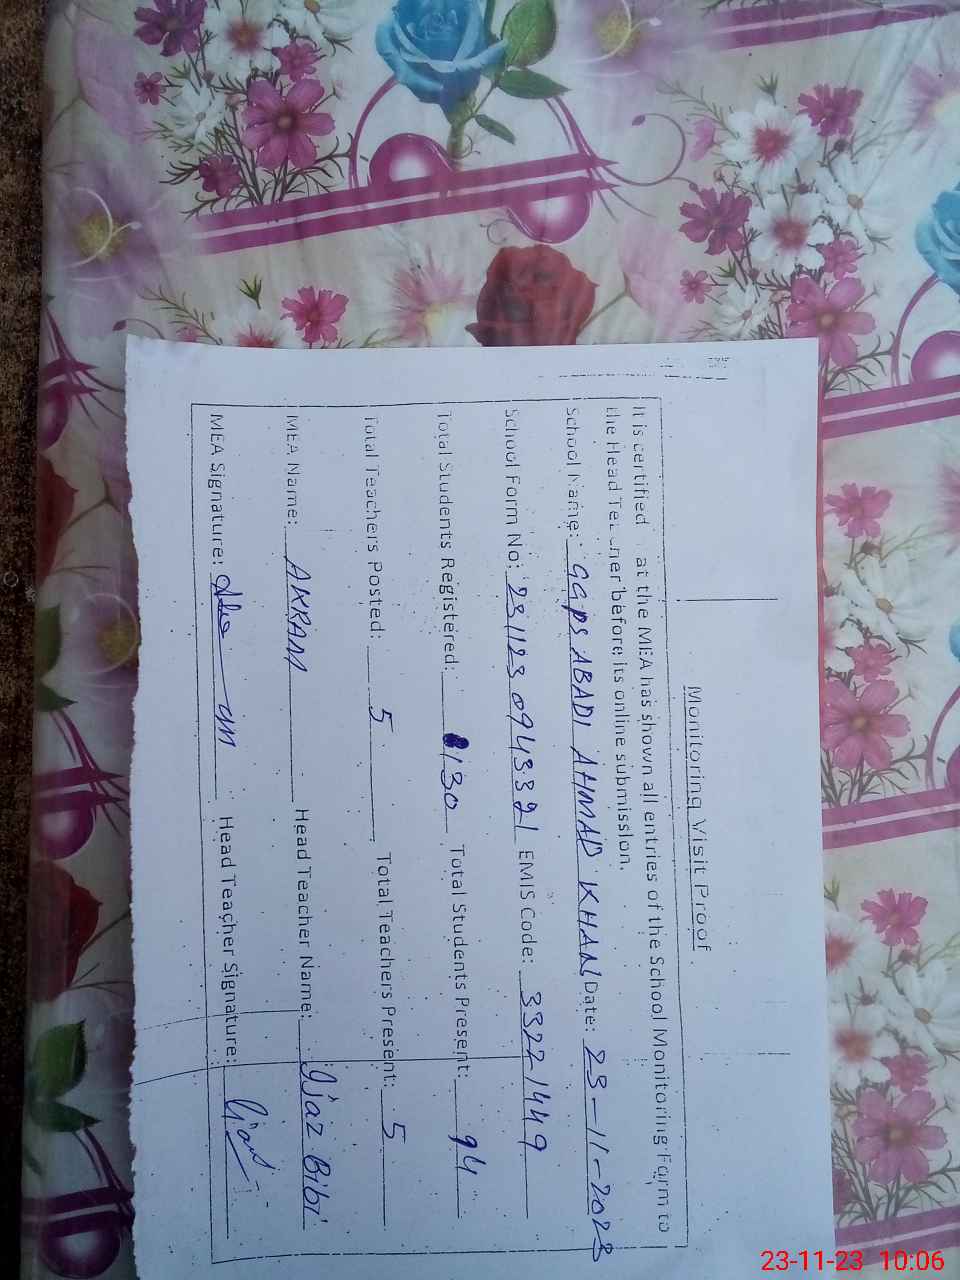 Monitoring Visit Proof
It is certified at the MEA has shown all entries of the School Monitoring Form to
the Head Te ner before its online submission.
School Name: GGPS ABADI AHMAD KHAN Date: 23-11-2023
School Form No: 2311230943321 EMIS Code: 33221449
Total Students Registered: 130 Total Students Present: 94
Total Teachers Posted: 5 Total Teachers Present: 5
MEA Name: AKRAM Head Teacher Name: Ijaz Bibi
MEA Signature: Head Teacher Signature:
23-11-23 10:06